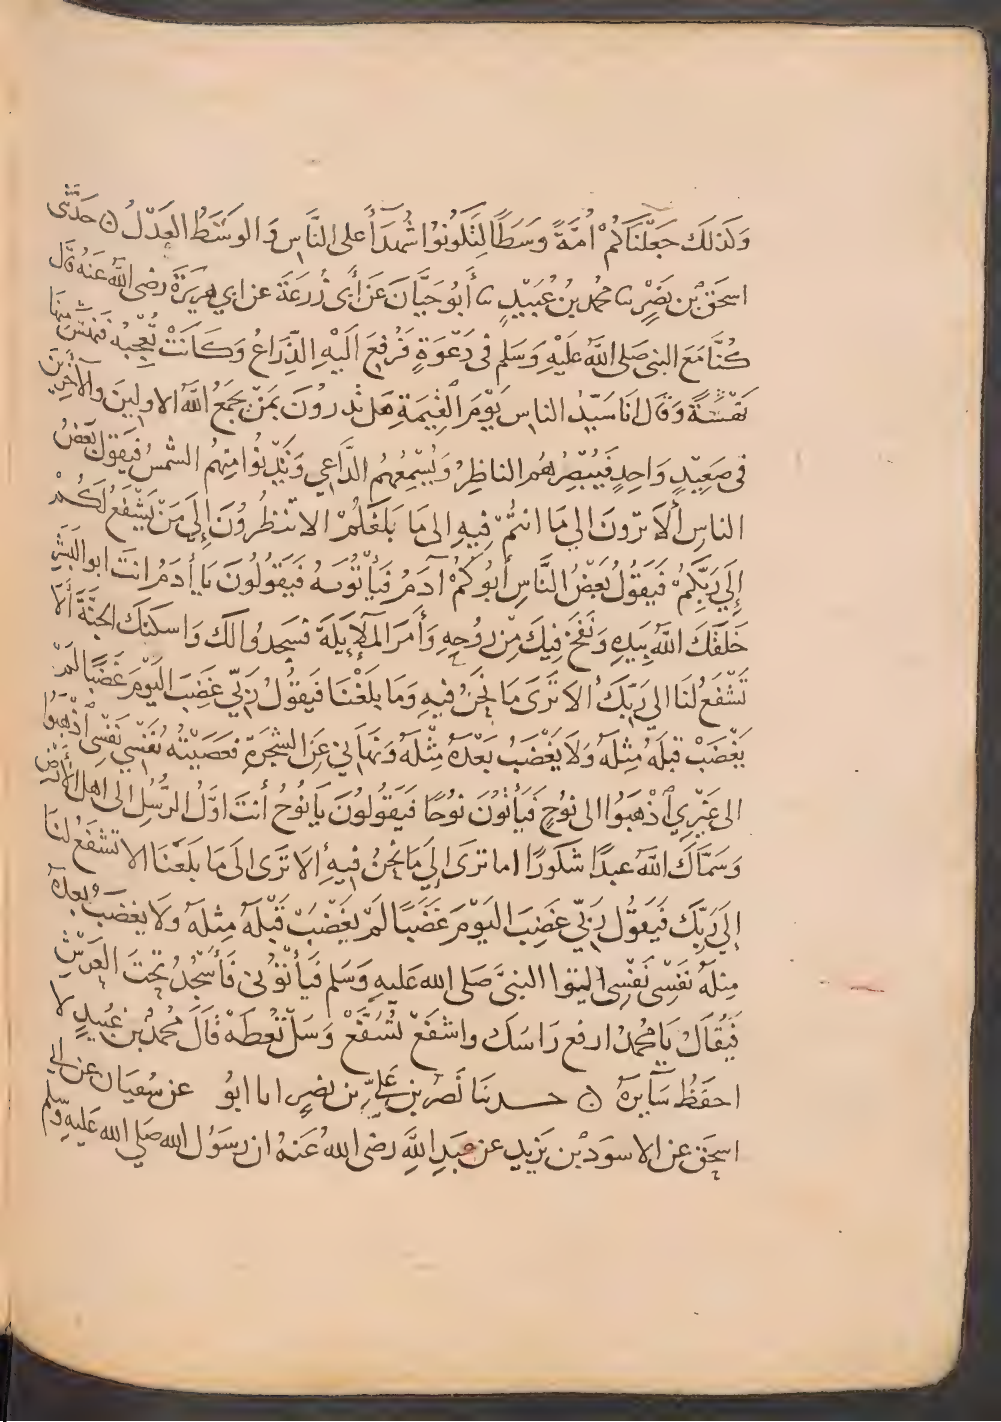 وَكَذلك جَعَلْنَاكُمْ اُمَّةً وَسَطًا لِتَكُونُوا شُهَدَآءَ على النَّاسِ وَالوَسَطُ العَدْلُ ۞ حَدَّثَنى
اسحق بْن نَصْرٍ نا محمد بنُ عُبَيْدٍ نا أبُو حَيَّانَ عَنْ أَبِى زُرعَةَ عن ابي هريرَةَ رضى اللّٰهُ عَنهُ قَالَ
كُنَّا مَعَ النبى صَلى اللّٰهُ عَلَيْهِ وَسَلم فى دَعْوَةٍ فَرُفِعَ الَيْهِ الذِّرَاعُ وَكَانَتْ تُعْجِبُهُ فنهش مِنهَا
نَهْسَةً وَقَالَ اَنَا سَيِّدُ الناس يَوْمَ القِيمَةِ هَل تَدرُونَ بِمَنْ يجمَعُ اللّٰهُ الاولِينَ والآخِرِينَ
فى صَعِيْدٍ وَاحِدٍ فَيُبْصِرُهُم الناظِرُ وَيُسْمِعُهُم الدَّاعِي وَتَدْنُوا مِنهُم الشمسُ فيَقول بَعْضُ
الناسِ أَلاَ تَرَونَ الي مَا انتُمْ فِيهِ الى مَا بَلَغَكُمْ الا تنظُرُونَ إِلَى مَنْ يَشْفَعُ لَكُمْ
إِلَى رَبِّكُمْ فَيَقُولُ بَعْضُ النَّاسِ أَبُوكُمْ آدَمُ فَيَأتُونَهُ فَيَقُولُونَ يَا أَدَمُ انتَ ابو البَشَرِ
خَلَقَكَ اللّٰهُ بِيَدِهِ وَنَفَخَ فِيكَ مِنْ رُوْحِهِ وَأَمَرَ المَلآئِكَةَ فسَجدُوا لكَ وَاسكنَكَ الجنَّةَ أَلاَ
تَشْفَعُ لنَا الي رَبِّكَ الا تَرَى مَا نحْنُ فيهِ وَمَا بلَغْنَا فَيقُولُ رَبِّي غَضِبَ اليَوْمَ غَضَبًا لَمْ
يَغْضَبْ قبْلَهُ مِثْلَهُ وَلاَ يَغْضَبُ بَعْدَهُ مِثْلَهُ وَنهَانِي عَنِ الشجَرَةِ فعَصَيْتُهُ نَفْسِي نَفْسِى اذْهَبُوا
الى غَيْرِي اذْهَبُوا الى نوُحٍ فَيَأتُونَ نوُحًا فَيَقُولُونَ يَا نُوْحُ أنتَ اوَّلُ الرُّسُلِ الى اهل الأَرْضِ
وَسَمَّاكَ اللّٰهُ عَبدًا شَكُورًا اما تَرَى إِلَي مَا نحْنُ فيهِ أَلا تَرَى الَى مَا بَلَغْنَا الا تَشْفَعُ لنَا
إِلَي رَبِّكَ فَيَقُولُ رَبِّي غَضِبَ اليَوْمَ غَضَبًا لَمْ يَغْضَبْ قَبْلَهُ مِثلهُ وَلا يغضَبُ بعدَهُ
مِثلهُ نَفْسِى نَفْسِى ائيتوا النبىَّ صَلى الله عَليهِ وَسَلم فيَأتوُنى فَأَسْجُدُ تحْتَ العَرْشِ
فَيُقَالُ يَا محُمدُ ارفع رَاسَكَ واشفَعْ تُشَفَّعْ وَسَلْ تُعْطَهْ قَالَ محُمدُ بن عُبيدٍ لا
احفَظُ سَآيرَهُ ۞ حــدثنَا نَصْرُ بن عَليِّ بن نصرٍ انا ابُو عن سُفيَان عن ابي
اسحق عن الاسوَد بْن يَزيد عن عَبدِ اللّٰهِ رضى اللهُ عَنهُ ان رسَوُل الله صَلي الله عَليهِ وَسلم